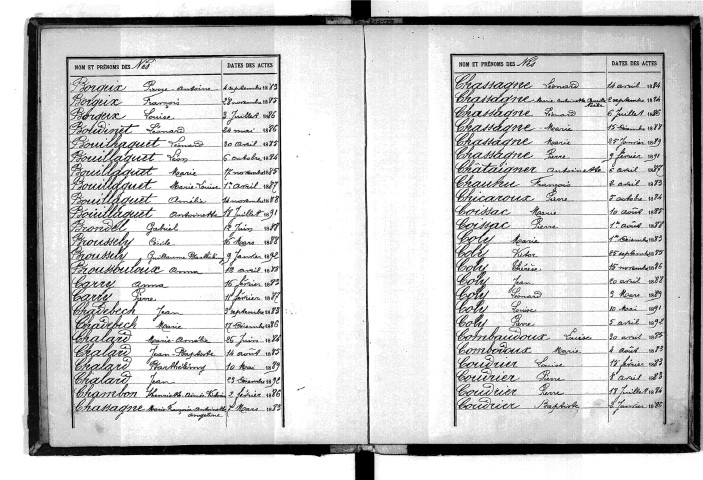 NOM ET PRÉNOMS DES Nés DATES DES ACTES
Borgeix Pierre-Antoine 4 septembre 1883
Borgeix François 28 novembre 1885
Borgeix Louise 3 Juillet 1886
Boudinet Léonard 24 mai 1886
Bouillaguet Léonard 30 avril 1885
Bouillaguet Léon 6 octobre 1884
Bouillaguet Marie 17 novembre 1885
Bouillaguet Marie-Louise 1er avril 1887
Bouillaguet Amélie 14 novembre 1888
Bouillaguet Antoinette 18 Juillet 1891
Brondel Gabriel Juin 1888
Broussely Cécile 16 Mars 1888
Broussely Guillaume Barthélémy 9 Janvier 1892
Broussouloux Anna 12 avril 1888
Carry Anna 16 février 1883
Carry Pierre 11 février 1887
Chadebech Jean 3 septembre 1883
Chadebech Marie 17 Décembre 1886
Chalard Marie Amélie 26 Juin 1884
Chalard Jean Baptiste 14 août 1885
Chalard Barthélémy 10 Mai 1889
Chalard Jean 23 Décembre 1892
Chambon Henriette Aimée 2 février 1886
Chassagne Marie Françoise Antoinette 7 Mars 1883
Angéline
NOM ET PRÉNOMS DES Nés DATES DES ACTES
Chassagne Léonard 14 avril 1884
Chassagne Marie Antoinette 2 septembre 1884
Chassagne Léonard 6 Juillet 1886
Chassagne Marie 15 Décembre 1888
Chassagne Marie 25 Janvier 1889
Chassagne Pierre 9 février 1891
Châtaigner Antoinette 5 avril 1887
Chauchu François 2 avril 1883
Chicaroux Pierre 5 octobre 1884
Coissac Marie 10 août 1885
Coissac Pierre 1er août 1888
Coly Marie 1er Décembre 1883
Coly Victor 25 septembre 1885
Coly Thérèse 15 novembre 1886
Coly Jean 20 avril 1888
Coly Léonard 3 Mars 1889
Coly Louise 10 Mai 1891
Coly Pierre 5 avril 1892
Combaudoux Louise 30 avril 1885
Comboudoux Marie 4 août 1883
Coudrier Louise 18 février 1883
Coudrier Pierre 8 avril 1883
Coudrier Pierre 17 Juillet 1884
Coudrier Baptiste 3 Janvier 1885